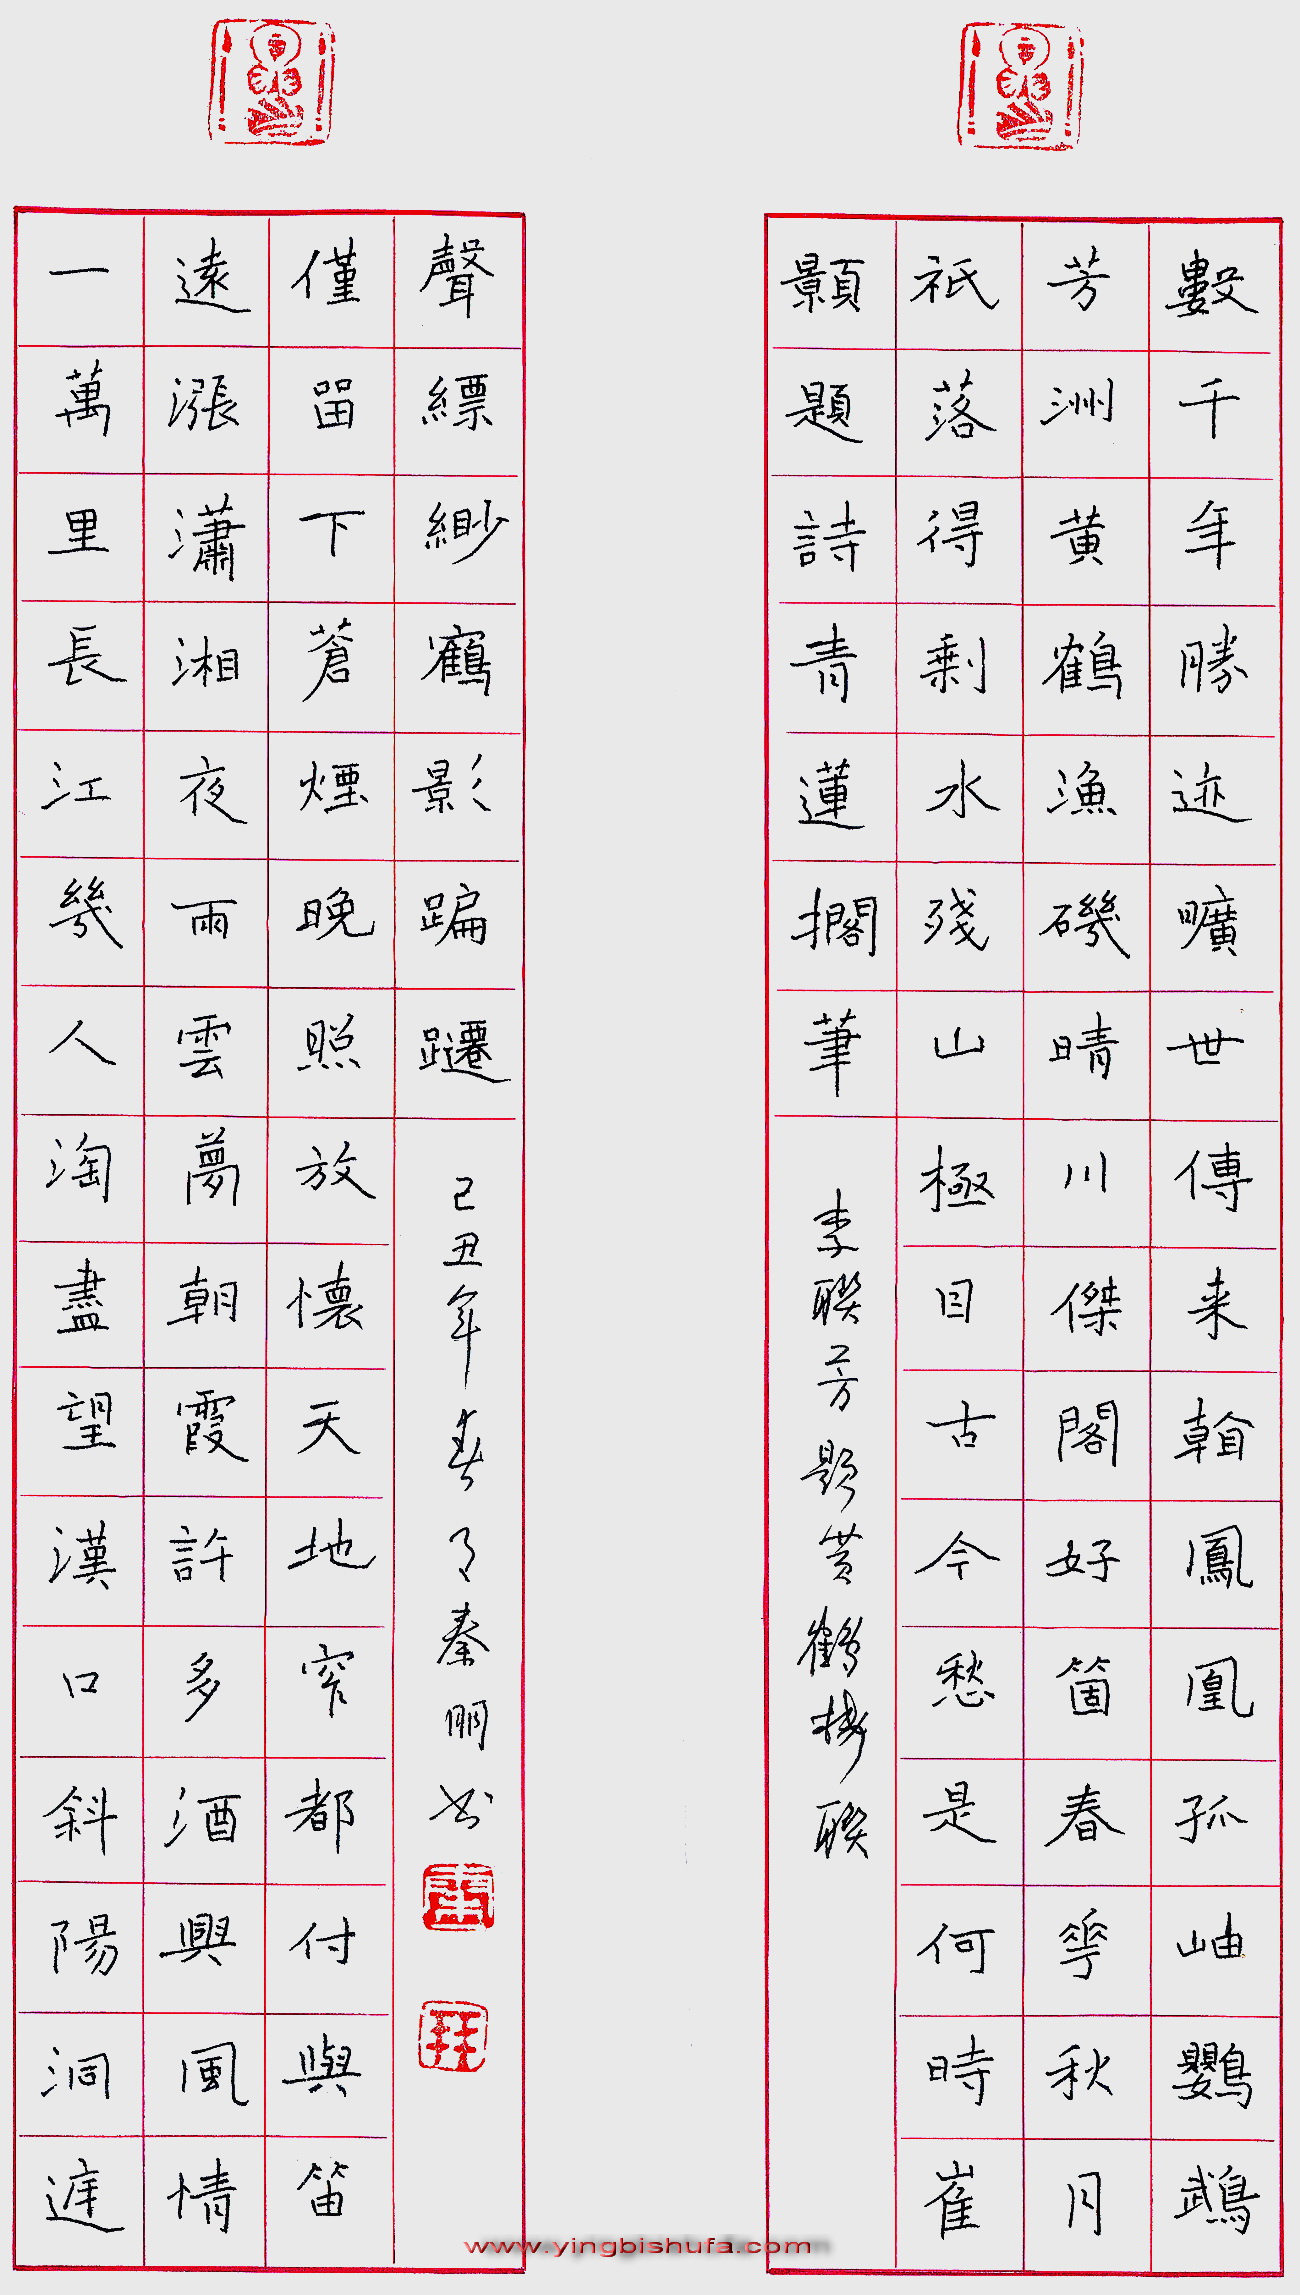 數千年勝迹曠世傳来看鳳凰孤岫鸚鵡
芳洲黄鶴漁磯晴川傑閣好箇春花秋月
祇落得剩水殘山極目古今愁是何時崔
顥題詩青蓮擱筆
李聯芳題黄鶴樓聯
一萬里長江幾人淘盡望漢口斜陽洞庭
遠漲瀟湘夜雨雲夢朝霞許多酒興風情
僅留下蒼煙晚照放懷天地窄都付與笛
聲縹緲鶴影蹁躚
己丑年春月秦明书
www.yingbishufa.com